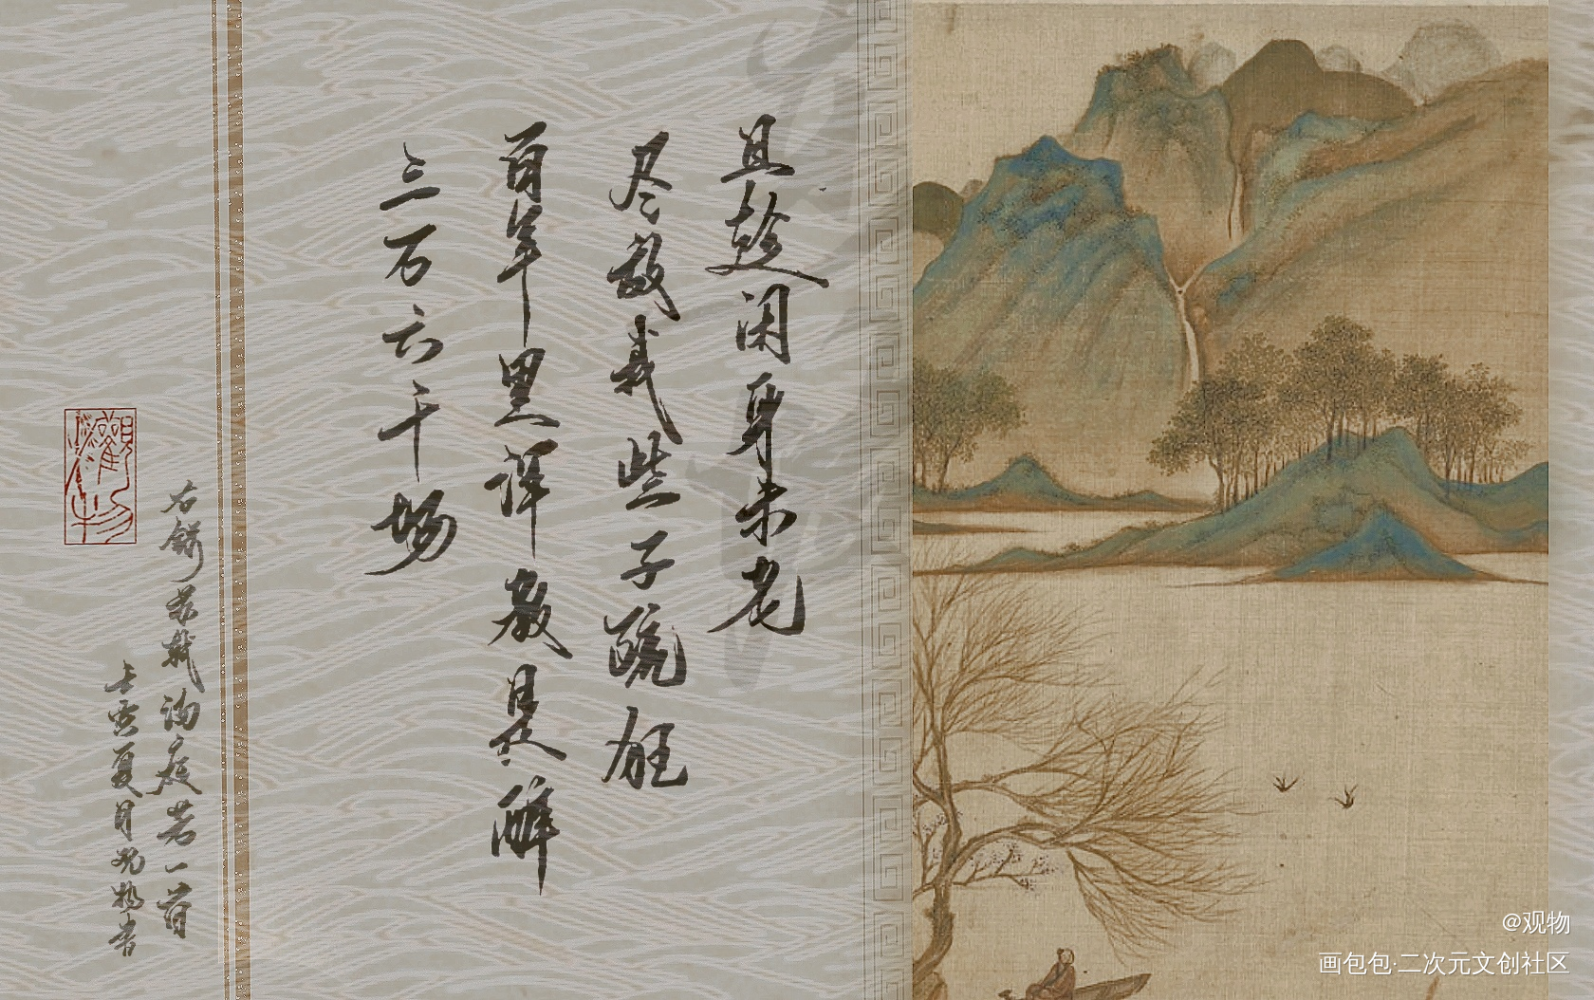 且趁闲身未老
尽放我些子疏狂
百年里浑教是醉
三万六千场
右錄苏轼满庭芳一首
壬寅夏月观物书
觀物
@观物
画包包·二次元文创社区